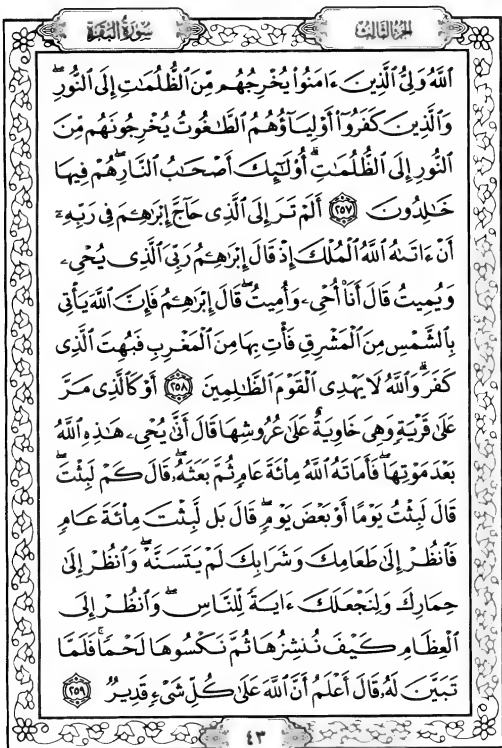 الجزء الثالث
سورة البقرة
ٱللَّهُ وَلِىُّ ٱلَّذِينَ ءَامَنُوا۟ يُخْرِجُهُم مِّنَ ٱلظُّلُمَٰتِ إِلَى ٱلنُّورِ ۖ
وَٱلَّذِينَ كَفَرُوٓا۟ أَوْلِيَآؤُهُمُ ٱلطَّٰغُوتُ يُخْرِجُونَهُم مِّنَ
ٱلنُّورِ إِلَى ٱلظُّلُمَٰتِ ۗ أُو۟لَٰٓئِكَ أَصْحَٰبُ ٱلنَّارِ ۖ هُمْ فِيهَا
خَٰلِدُونَ ٢٥٧ أَلَمْ تَرَ إِلَى ٱلَّذِى حَآجَّ إِبْرَٰهِـۧمَ فِى رَبِّهِۦٓ
أَنْ ءَاتَىٰهُ ٱللَّهُ ٱلْمُلْكَ إِذْ قَالَ إِبْرَٰهِـۧمُ رَبِّىَ ٱلَّذِى يُحْىِۦ
وَيُمِيتُ قَالَ أَنَا۠ أُحْىِۦ وَأُمِيتُ ۖ قَالَ إِبْرَٰهِـۧمُ فَإِنَّ ٱللَّهَ يَأْتِى
بِٱلشَّمْسِ مِنَ ٱلْمَشْرِقِ فَأْتِ بِهَا مِنَ ٱلْمَغْرِبِ فَبُهِتَ ٱلَّذِى
كَفَرَ ۗ وَٱللَّهُ لَا يَهْدِى ٱلْقَوْمَ ٱلظَّٰلِمِينَ ٢٥٨ أَوْ كَٱلَّذِى مَرَّ
عَلَىٰ قَرْيَةٍ وَهِىَ خَاوِيَةٌ عَلَىٰ عُرُوشِهَا قَالَ أَنَّىٰ يُحْىِۦ هَٰذِهِ ٱللَّهُ
بَعْدَ مَوْتِهَا ۖ فَأَمَاتَهُ ٱللَّهُ مِا۟ئَةَ عَامٍ ثُمَّ بَعَثَهُۥ ۖ قَالَ كَمْ لَبِثْتَ ۖ
قَالَ لَبِثْتُ يَوْمًا أَوْ بَعْضَ يَوْمٍ ۖ قَالَ بَل لَّبِثْتَ مِا۟ئَةَ عَامٍ
فَٱنظُرْ إِلَىٰ طَعَامِكَ وَشَرَابِكَ لَمْ يَتَسَنَّهْ ۖ وَٱنظُرْ إِلَىٰ
حِمَارِكَ وَلِنَجْعَلَكَ ءَايَةً لِّلنَّاسِ ۖ وَٱنظُرْ إِلَى
ٱلْعِظَامِ كَيْفَ نُنشِزُهَا ثُمَّ نَكْسُوهَا لَحْمًا ۚ فَلَمَّا
تَبَيَّنَ لَهُۥ قَالَ أَعْلَمُ أَنَّ ٱللَّهَ عَلَىٰ كُلِّ شَىْءٍ قَدِيرٌ ٢٥٩
٤٣